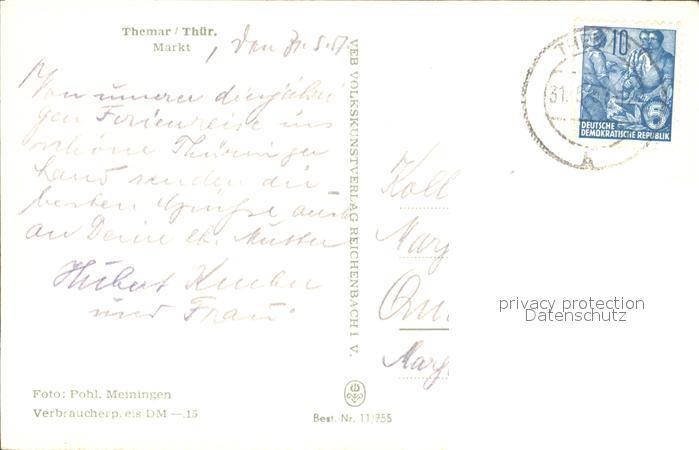 Themar / Thür.
Markt
, den 31.5.57.
Von unserer diesjähri
gen Ferienreise ins
schöne Thüringer
Land senden die
besten Grüße auch
an Deine lb. Mutter
Hubert
und Frau.
Foto: Pohl, Meiningen
Verbraucherp.eis DM —.15
VEB VOLKSKUNSTVERLAG REICHENBACH I. V.
Best.-Nr. 11/755
10
5
DEUTSCHE
DEMOKRATISCHE REPUBLIK
Koll
privacy protection
Datenschutz